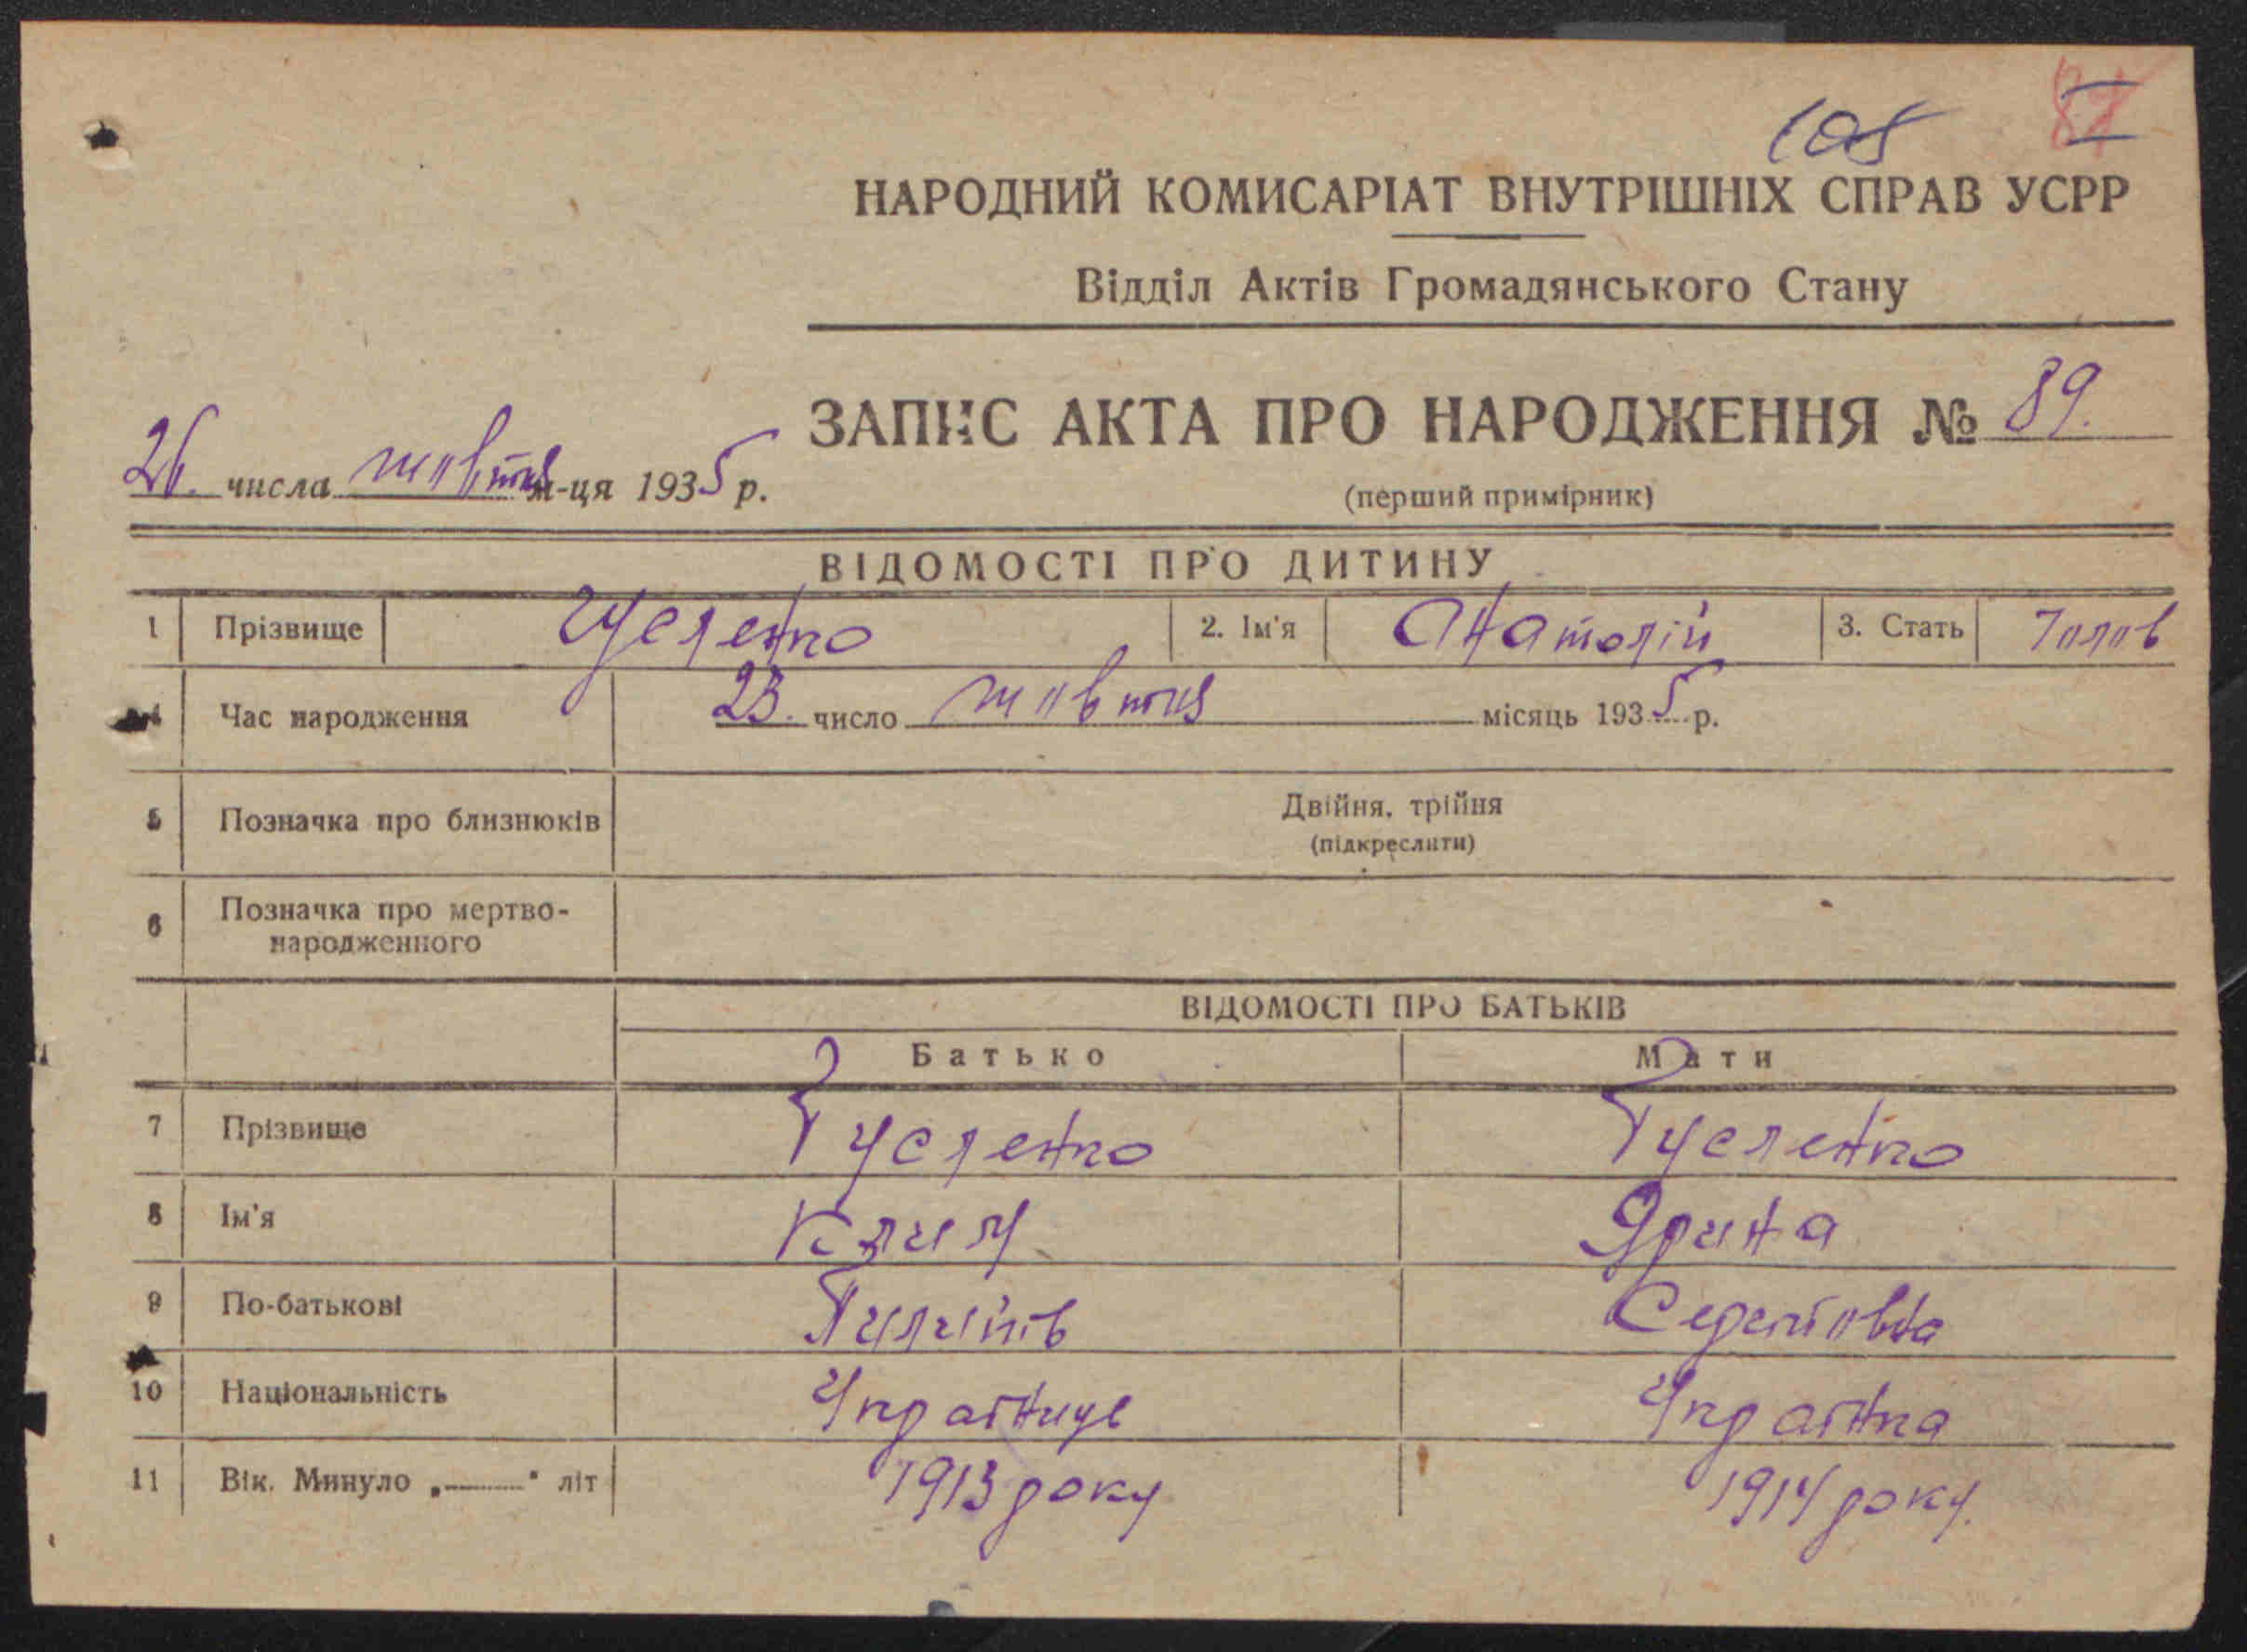 105
НАРОДНИЙ КОМИСАРІАТ ВНУТРІШНІХ СПРАВ УСРР
Відділ Актів Громадянського Стану
ЗАПИС АКТА ПРО НАРОДЖЕННЯ № 89.
26. числа жовтня м-ця 1935 р.
(перший примірник)
ВІДОМОСТІ ПРО ДИТИНУ
1 Прізвище Гусленко 2. Ім'я Анатолій 3. Стать Чолов
4 Час народження 23. число жовтня місяць 1935 р.
5 Позначка про близнюків Двійня, трійня
(підкреслити)
6 Позначка про мертво-
народженного
ВІДОМОСТІ ПРО БАТЬКІВ
Батько Мати
7 Прізвище Гусленко Гусленко
8 Ім'я Клим Ярина
9 По-батькові Пилипів
10 Національність Українце Українка
11 Вік. Минуло „ “ літ 1913 року 1914 року.